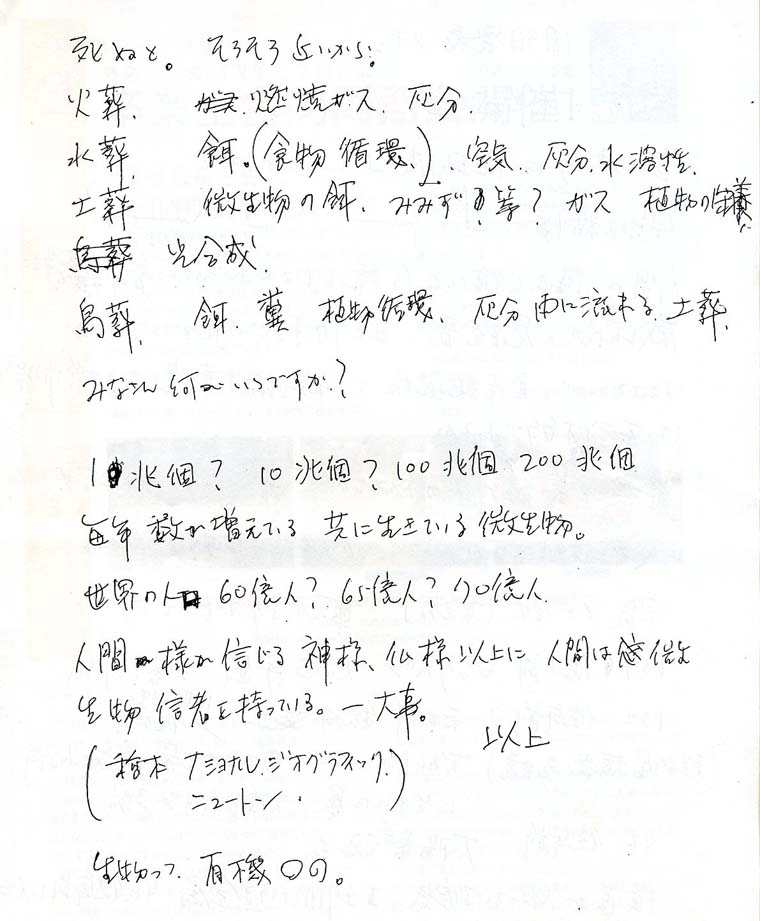 死ぬと。そろそろ近いから。
火葬、 燃焼ガス 灰分
水葬、 餌。(食物循環、)、空気、灰分、水溶性、
土葬 微生物の餌、みみず 等? ガス 植物の
鳥葬 光合成、
鳥葬、 餌、糞 植物循環、灰分 雨に流れる 土葬、
みなさん何がいいですか?
1兆個? 10兆個? 100兆個 200兆個
毎年 数が増えている 共に生きている微生物。
世界の人 60億人? 65億人? 70億人
人間 様が信じる神様、仏様以上に 人間は 微
生物 信者を持っている。一大事。
以上
( ナショナル、ジオグラフィック、
ニュートン・)
生物って 有機〇の。